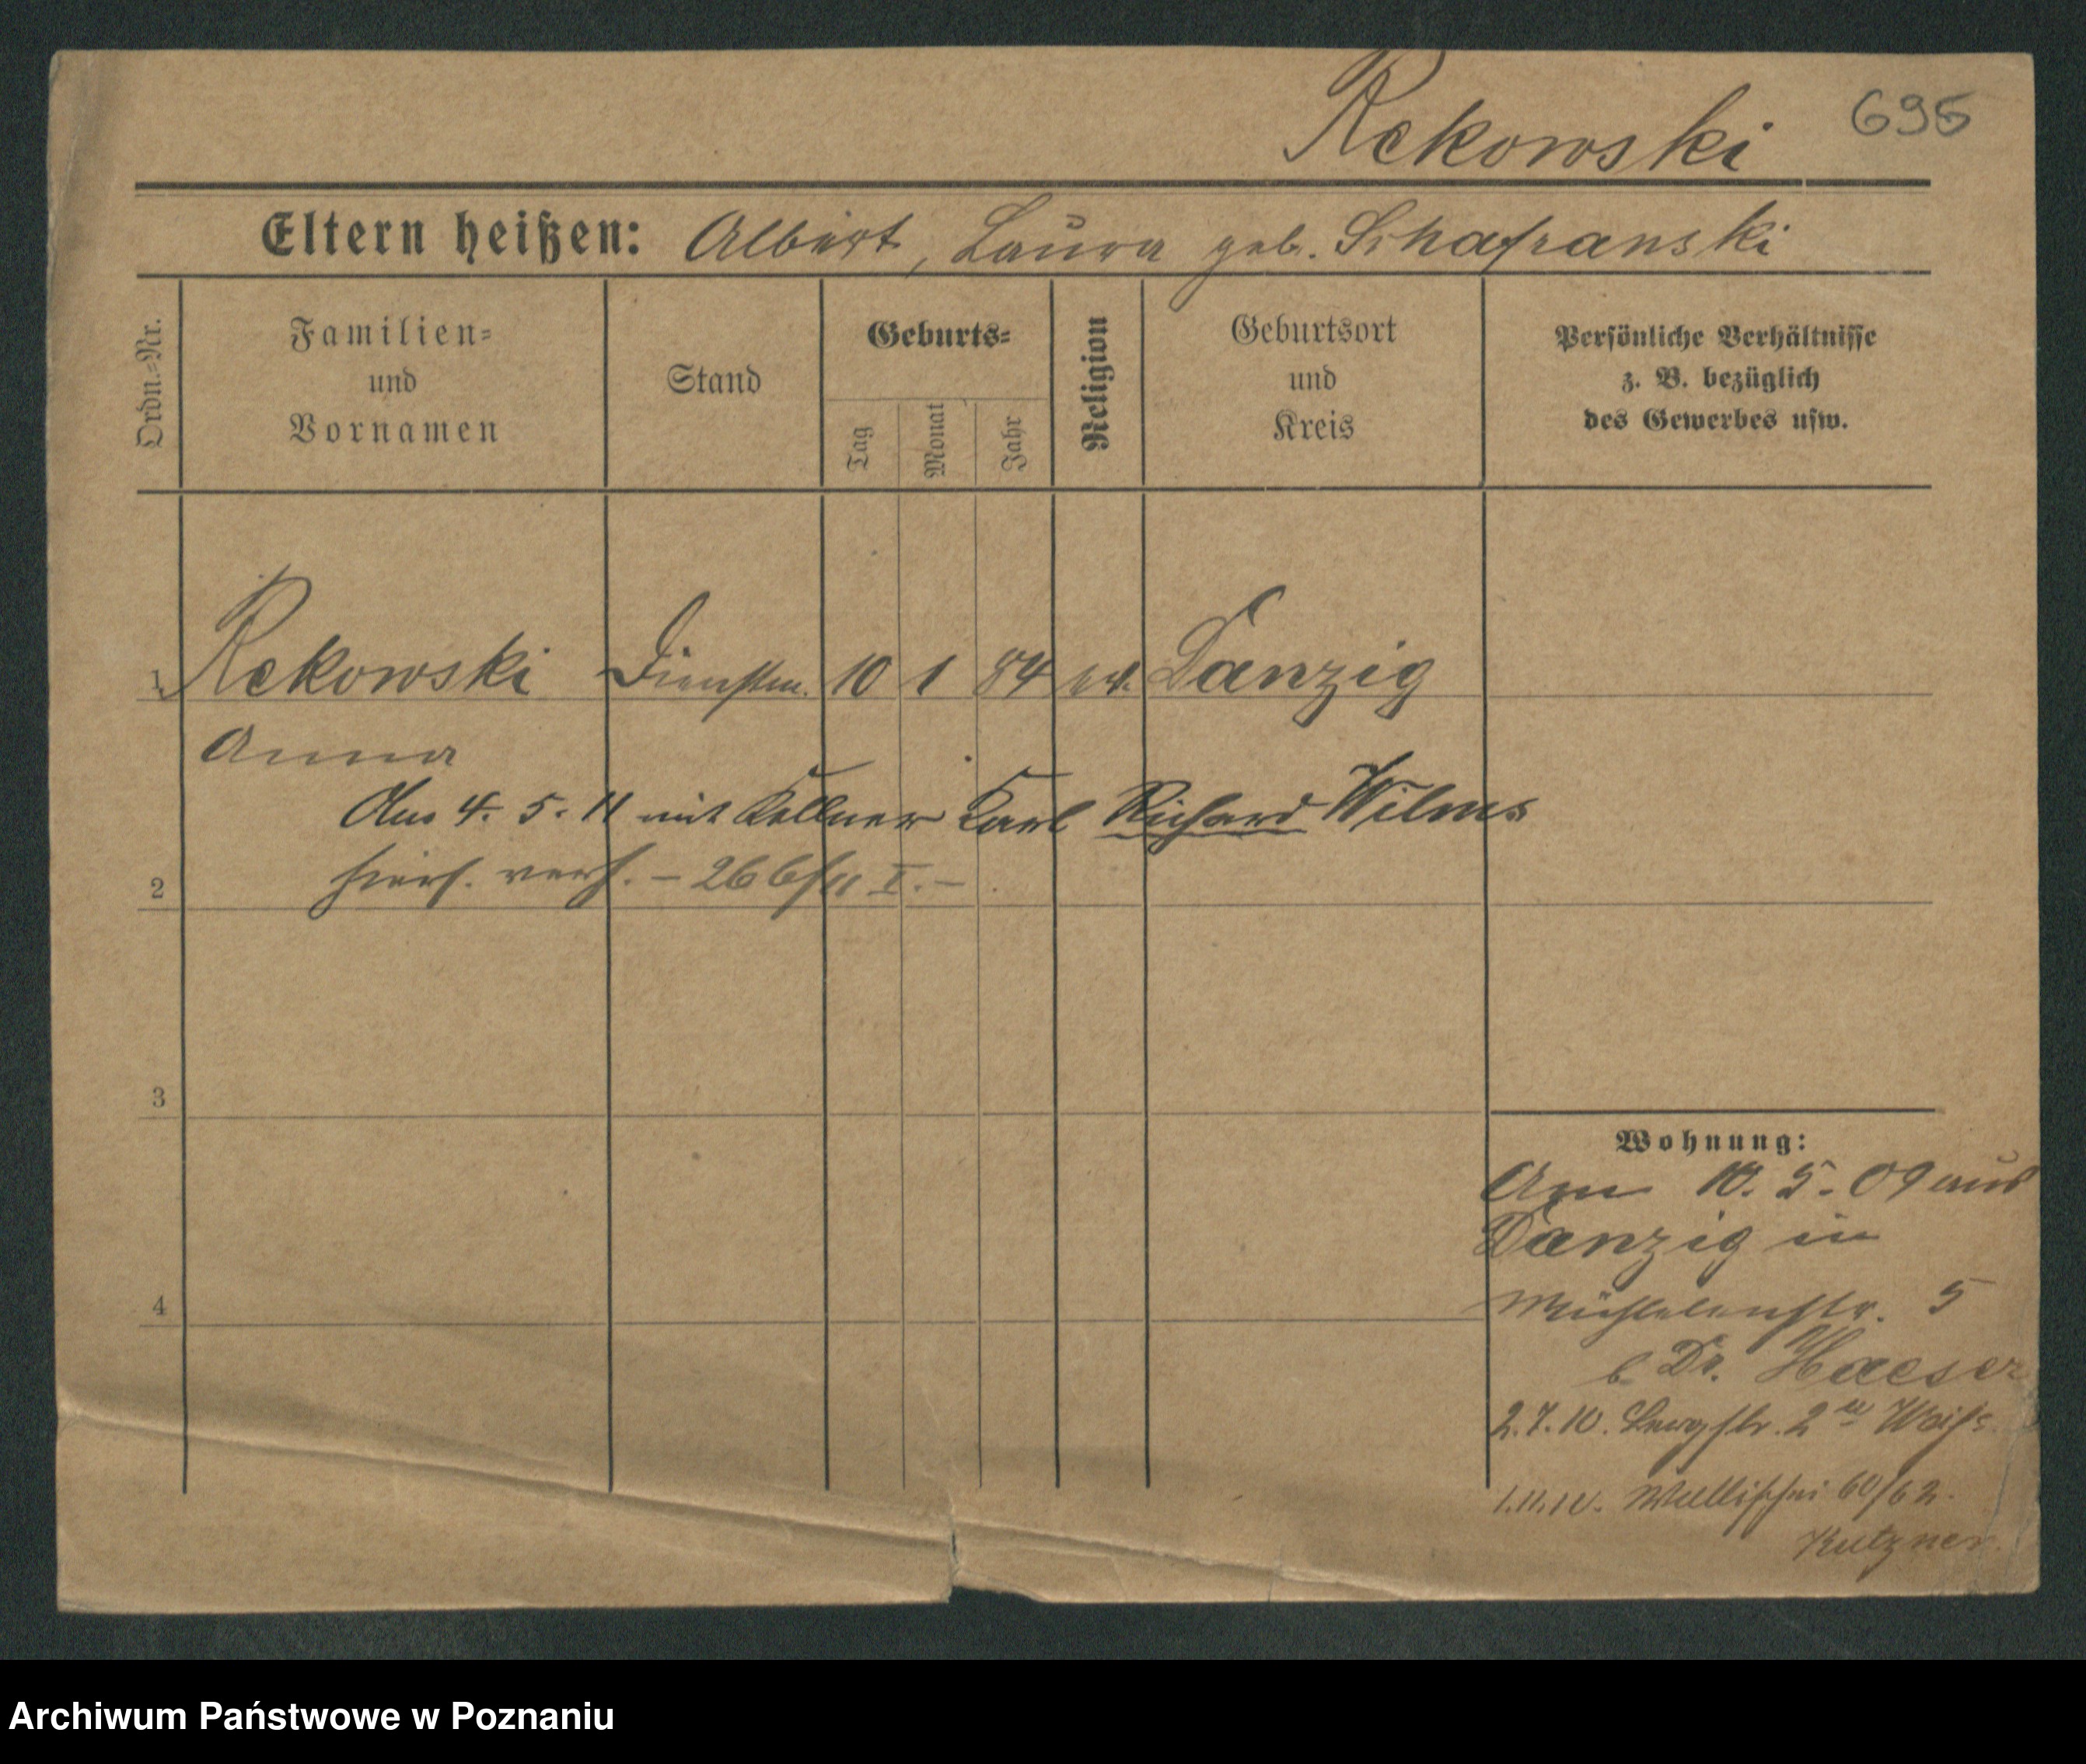 Rekowski 695
Eltern heißen: Albert, Laura geb. Schafranski
Ordn.-Nr.
Familien-
und
Vornamen
Stand
Geburts-
Tag
Monat
Jahr
Religion
Geburtsort
und
Kreis
Persönliche Verhältnisse
z. B. bezüglich
des Gewerbes usw.
1 Rekowski Dienstm. 10 1 84 ev. Danzig
Anna
Am 4. 5. 11 mit Kellner Karl Richard Wilms
2 hiers. verh. – 266/11 I. –
3
4
Wohnung:
Am 10. 5. 09 aus
Danzig in
Mühlenstr. 5
b. Dr. Haeser
2. 7. 10. 2
1. 11. 10. Wallischei 60/62.
Kutzner